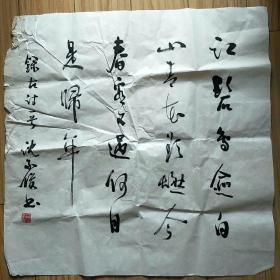 江碧鸟愈白
山青花欲燃今
春看又过何日
是归年
录古诗一首 沈
书